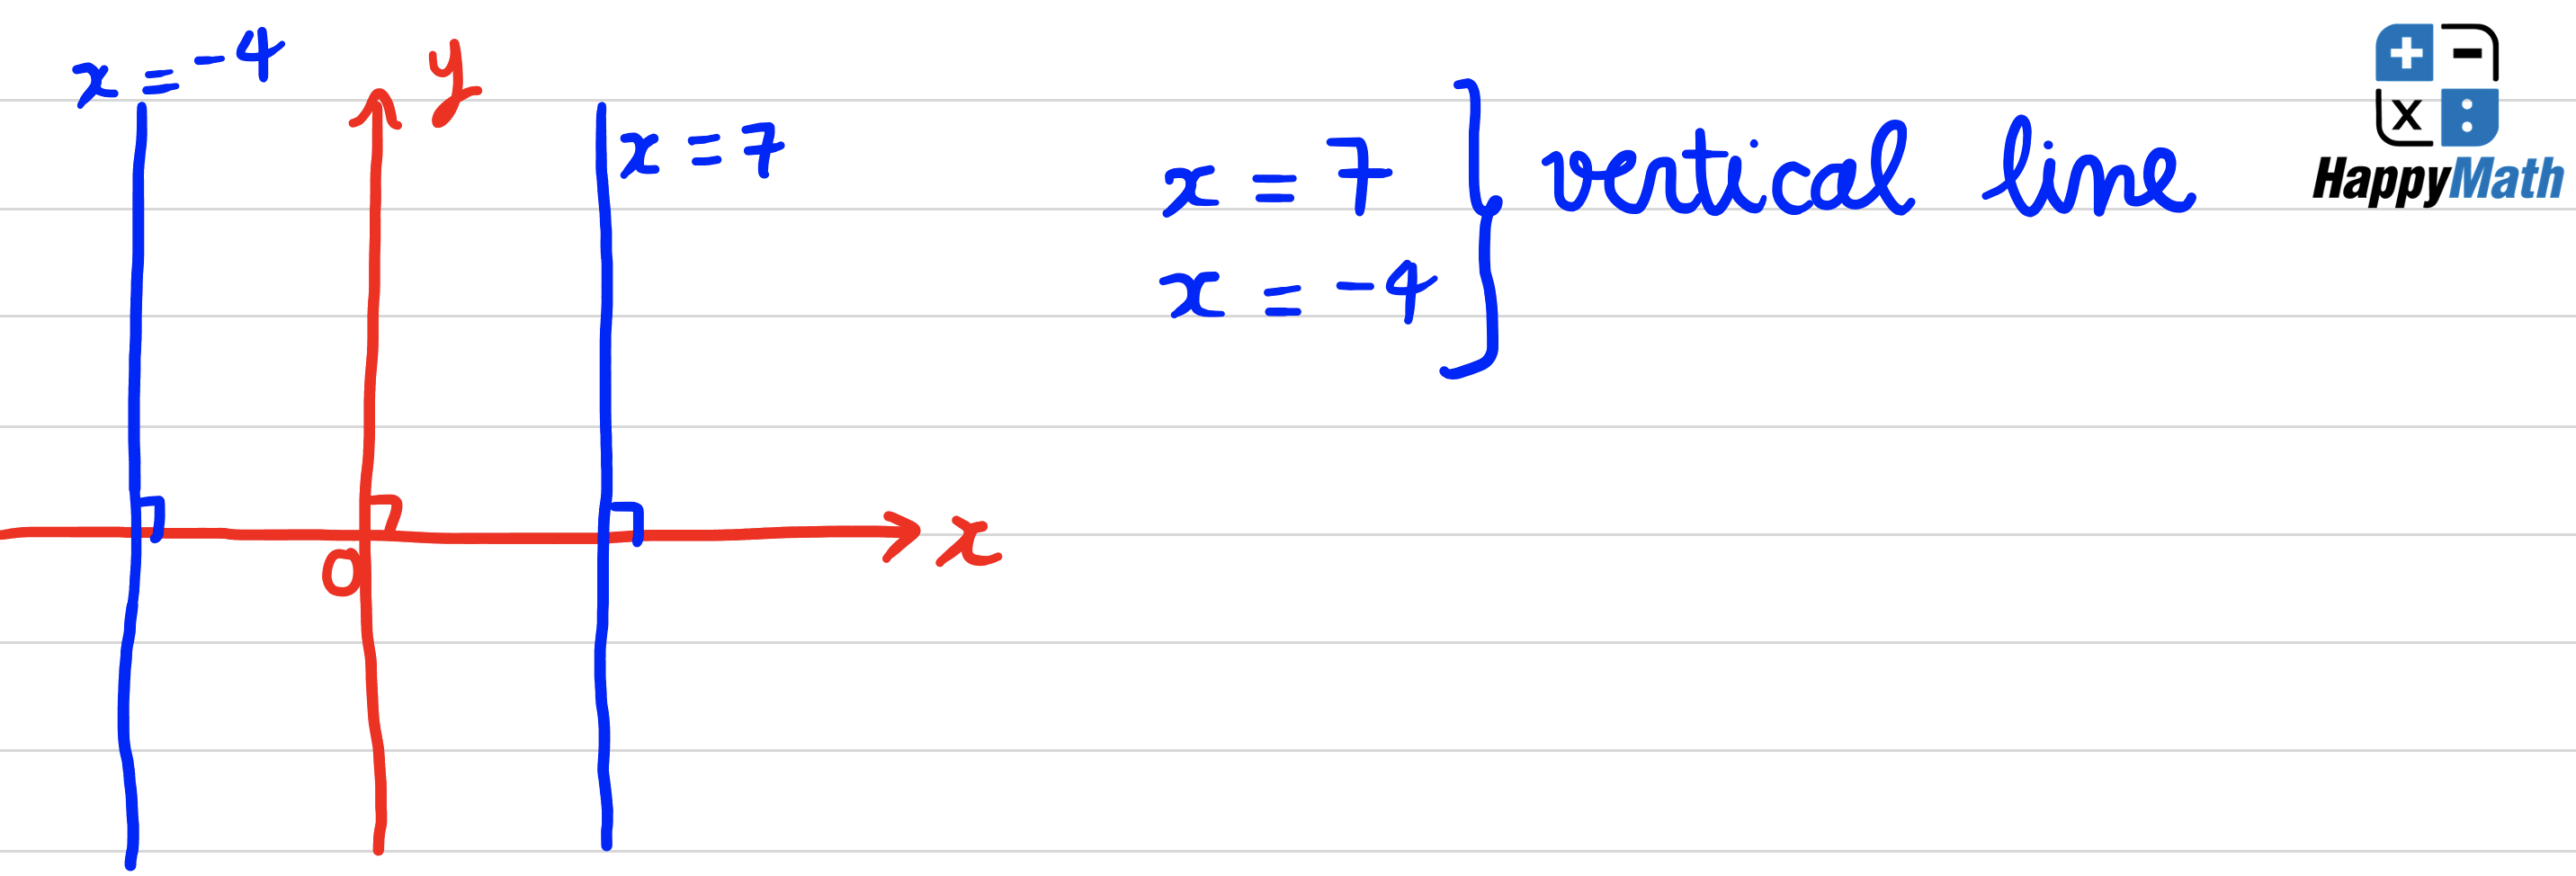 x = -4
y
x = 7
x
0
x = 7
x = -4
vertical line
+ -
x :
HappyMath